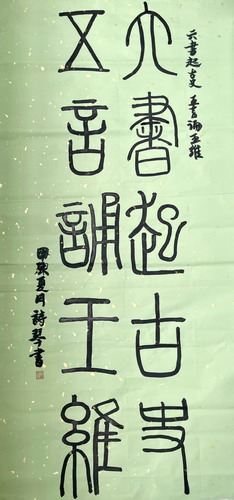 六書起古史 五言誦王維
六書起古史
五言誦王維
甲辰夏月詩琴書